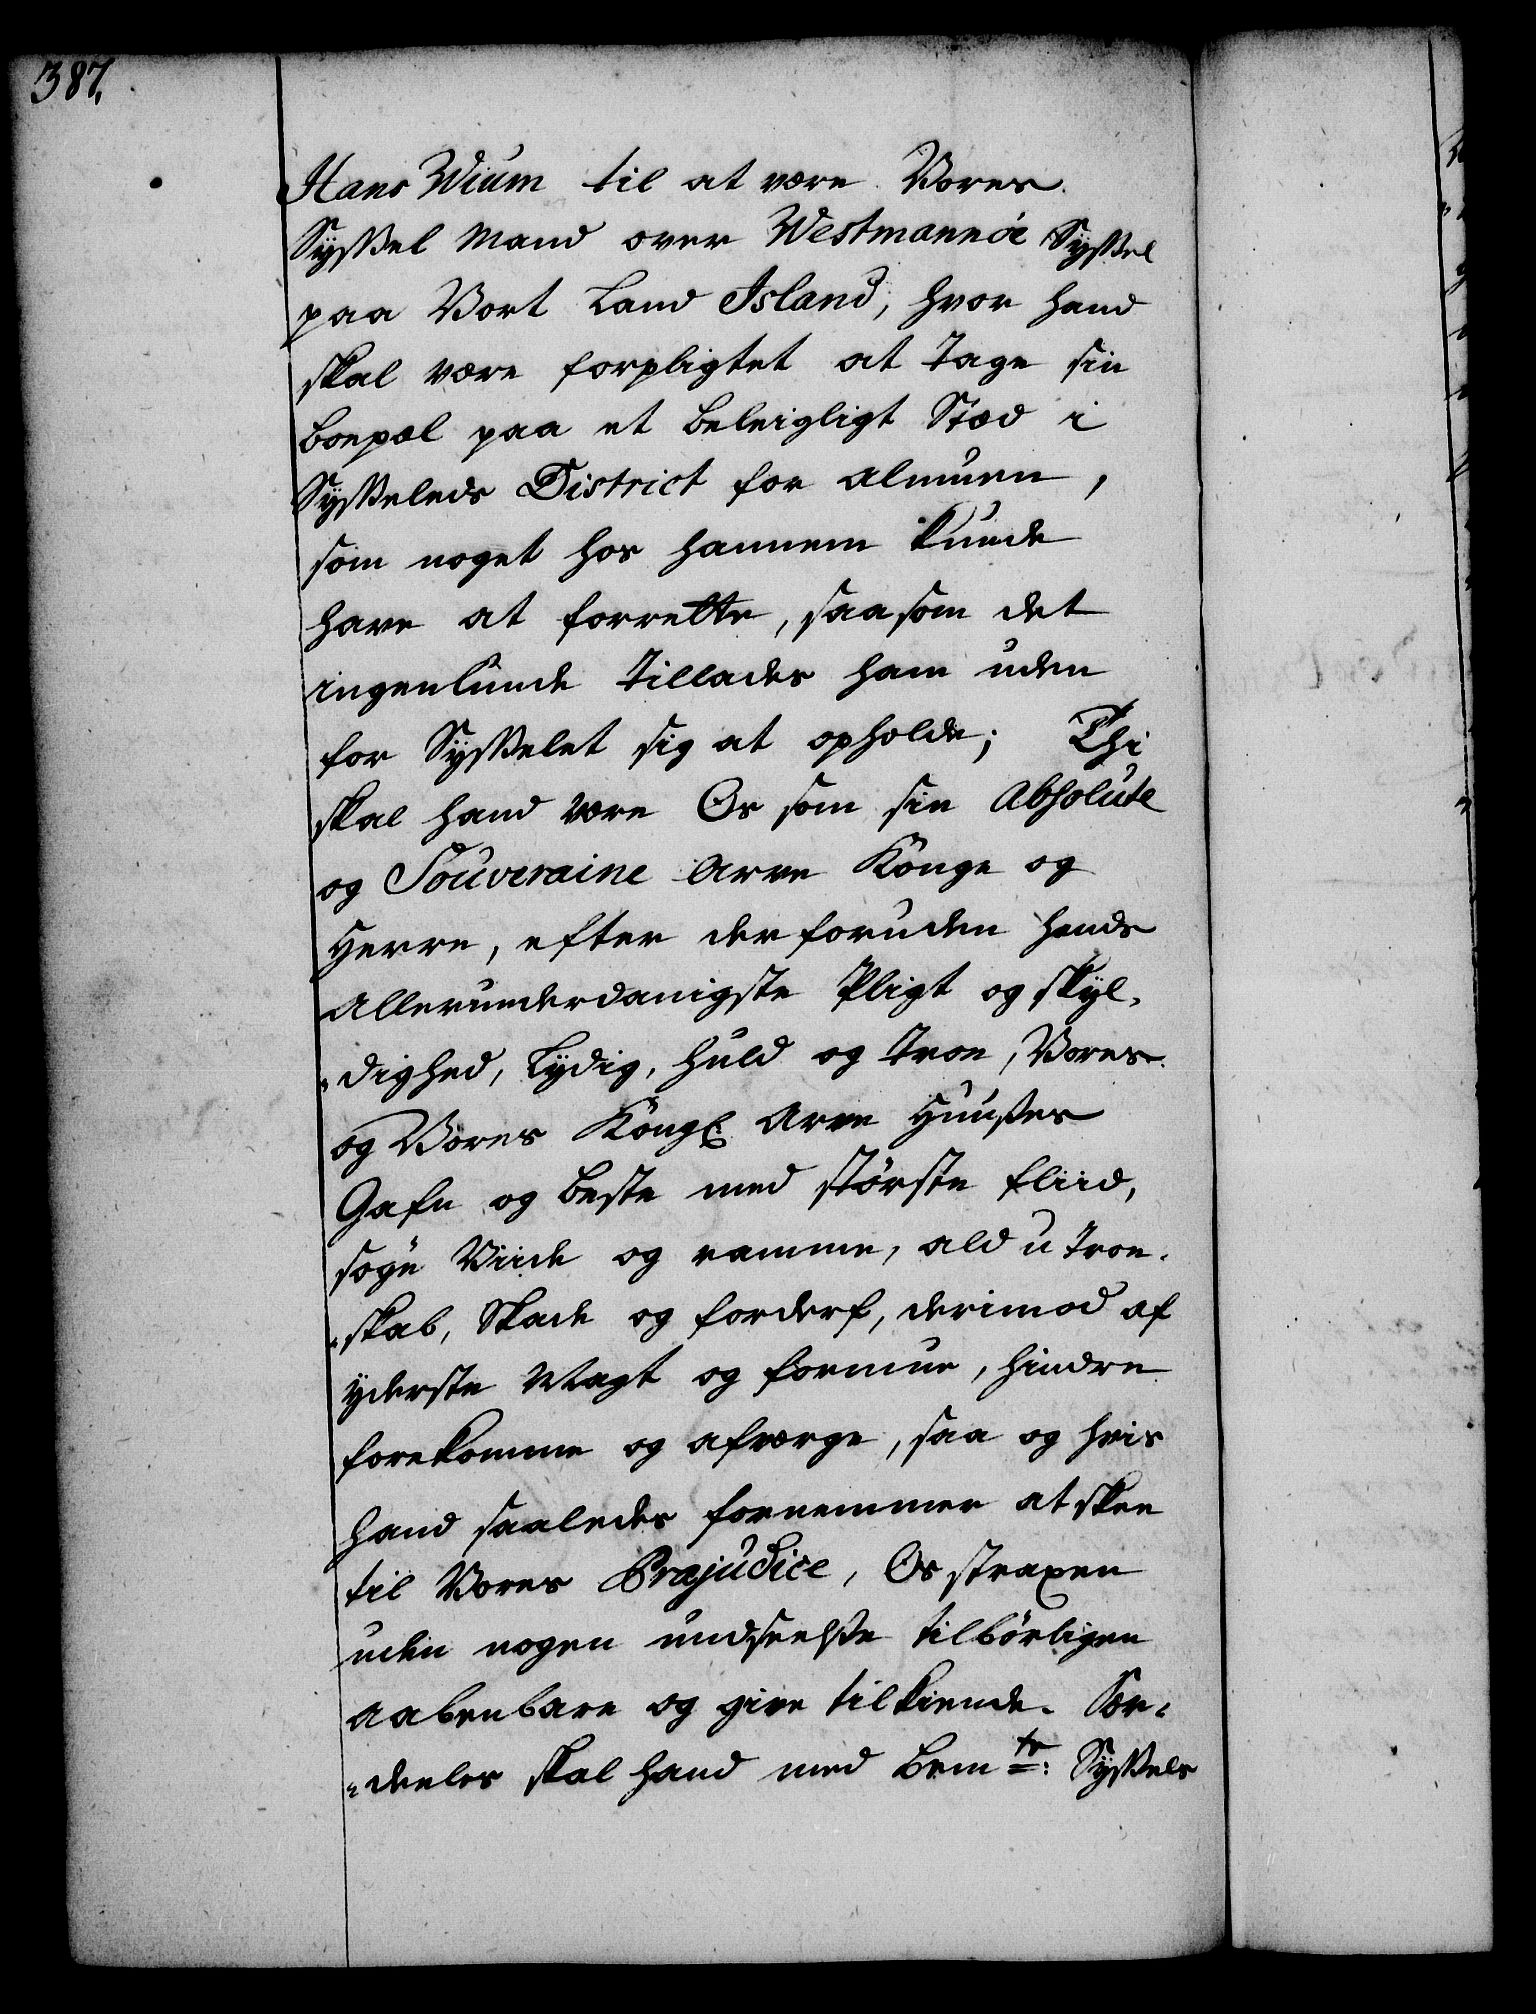 387.
Hans Wium til at være Vores
Sysßel Mand over Westmannöe Sysßel
paa Vort Land Island, hvor hand
skal være forpligtet at Tage sin
boepæl paa et beleigligt Stæd i
Sysßeleds District for almuen,
som noget hos hannem kunde
have at forrette, saasom det
ingenlunde Tillades ham uden
for Sysßelet sig at opholde; Thi
skal hand være Os som sin Absolute
og Souveraine Arve Konge og
Herre, efter derforuden hands
allerunderdanigste Pligt og skyl-
-dighed, Lydig, huld og Troe, Vores
og Vores Kongl: Arve Huuses
Gafn og beste med største fliid,
søge Viide og ramme, ald u Troe-
-skab, Skade og forderf, derimod af
yderste Magt og formue, hindre
forekomme og afværge, saa og hvis
hand saaledes fornemmer at skee
til Vores Præjudice, Os straxen
uden nogen undseelse tilbørligen
aabenbare og give tilkiende. Sær-
-deeles skal hand med bemte: Sysßels